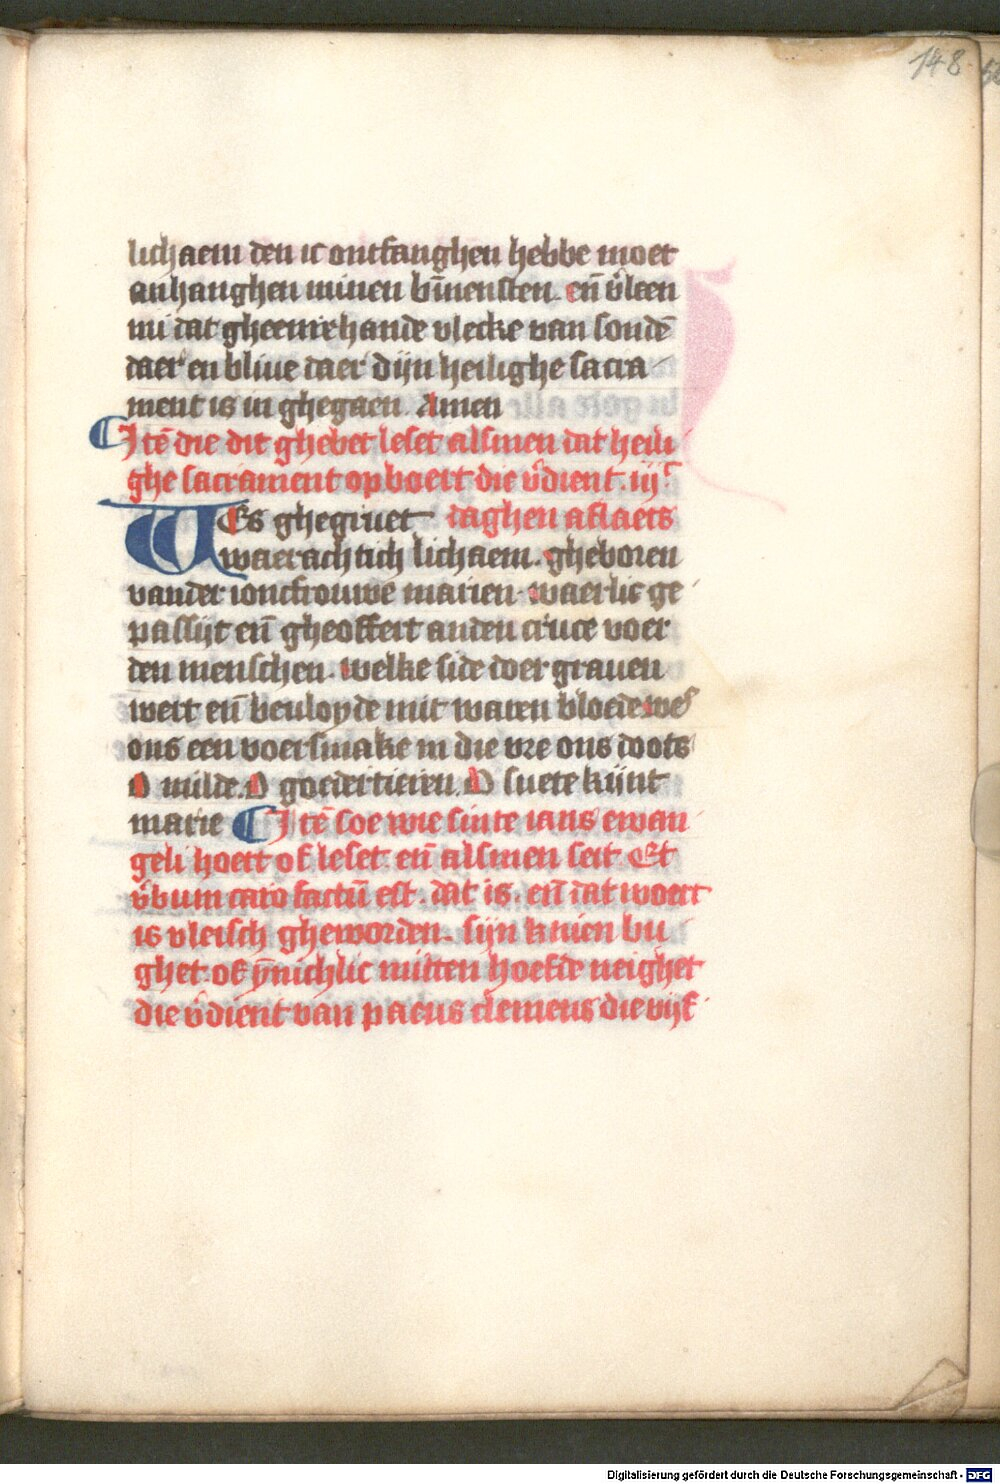 148
lichaem den ic ontfanghen hebbe moet
anhanghen minen bīnensten. en̄ v̓leen
mi dat gheenrehande vlecke van sondē
daer en blive daer dijn heilighe sacra
ment is in ghegaen. Amen
Itē die dit ghebet leset alsmen dat heili
ghe sacrament opboert die v̓dient. iijͨ
Wes ghegruet daghen aflaets
waerachtich lichaem. gheboren
vander ioncfrouwe marien. waerlic ge
passijt en̄ gheoffert anden cruce voer
den menschen. welke side doer grauen
wert en̄ beuloyde mit waren bloede. wes
ons een voersmake in die vre ons doots
O milde. O goedertieren. O suete kijnt
marie Itē soe wie sinte ians ewan
geli hoert of leset. en̄ alsmen seit. Et
v̓bum caro factū est. dat is. en̄ dat woert
is vleisch gheworden. sijn knien bu
ghet. of ȳnichlic mitten hoefde neighet
die v̓dient van paeus clemens die vijf
Digitalisierung gefördert durch die Deutsche Forschungsgemeinschaft - DFG